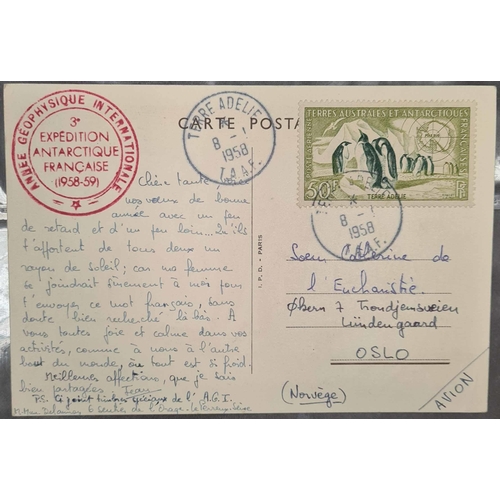 ANNÉE GÉOPHYSIQUE INTERNATIONALE
3e
EXPÉDITION
ANTARCTIQUE
FRANÇAISE
(1958-59)
CARTE POSTA
TERRE ADELIE
8 - 1
1958
T.A.A.F.
TERRES AUSTRALES ET ANTARCTIQUES FRANÇAISES
50F
RF
TERRE ADELIE
8 - 1
1958
T.A.A.F.
Chère tante,
nos voeux de bonne
année avec un peu
de retard et d'un peu loin... Qu'ils
t'apportent de tous deux un
rayon de soleil; car ma femme
se joindrait sûrement à moi pour
t'envoyer ce mot français, sans
doute bien recherché là-bas. À
vous toutes joie et calme dans vos
activités, comme à nous à l'autre
bout du monde, où tout est si froid.
Meilleures affections, que je sais
bien partagées. Jean
P.S. Ci-joint timbres spéciaux de l'A.G.I.
I. P. D. - PARIS
Soeur Catherine de
l'Eucharistie
Økern 7 Trondjemsveien
Lundengaard
OSLO
(Norvège)
AVION